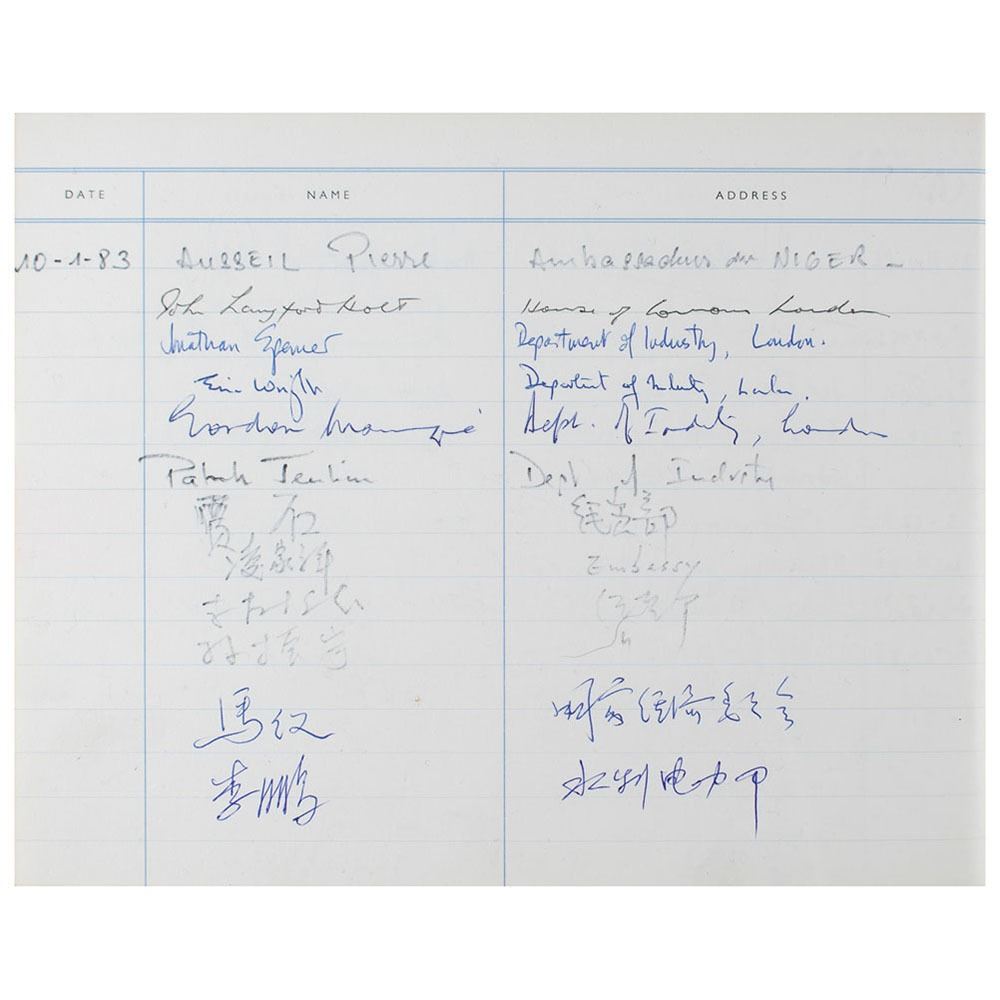 DATE NAME ADDRESS
10-1-83 AUSSEIL Pierre Ambassadeur du NIGER -
John Langford Holt House of Commons London
Jonathan Spencer Department of Industry, London.
Eric Wright Department of Industry, London.
Gordon Manzie Dept. of Industry, London
Patrick Jenkin Dept of Industry
贾石 经贸部
凌家洋 Embassy
孙
馬仪 国家经济委员会
李鹏 水利电力部